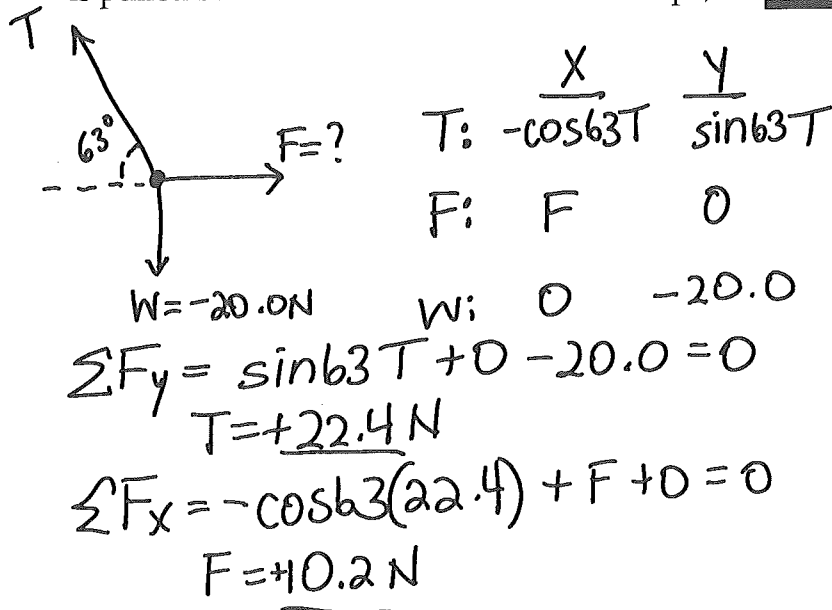 T
X Y
63° F=? T: -cos63T sin63T
F: F 0
W=-20.0N W: 0 -20.0
ΣFy = sin63T +0 -20.0 =0
T=+22.4N
ΣFx = -cos63(22.4) + F +0 =0
F=+10.2N